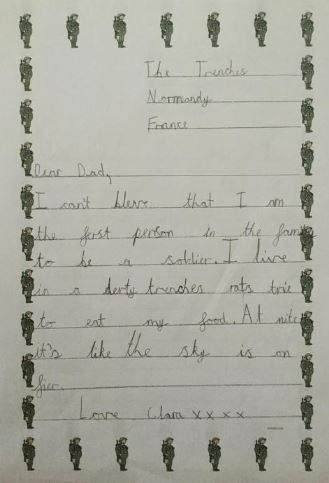 The Trenches
Normandy
France
Dear Dad,
I can't bleve that I am
the ferst person in the famly
to be a soldier. I live
in a derty trenches rats trie
to eat my food. At nite
it's like the sky is on
fier.
Love Clara x x x x